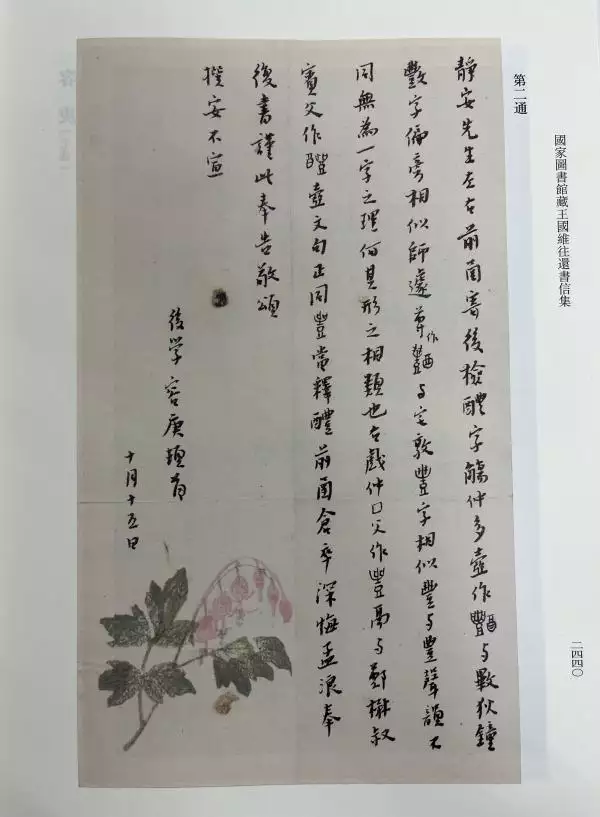 國家圖書館藏王國維往還書信集
二四四〇
第二通
靜安先生左右前函寄後檢醴字觴仲多壺作与狄鐘
字偏旁相似師遽尊作与宅敦豐字相似豊与豐聲韻不
同無為一字之理何其形之相類也右戲仲口父作豐鬲与鄭楙叔
賓父作醴壺文句正同豐當釋醴前函倉卒深悔孟浪奉
復書謹此奉告敬頌
撰安不宣
後学容庚頓首
十月十五日